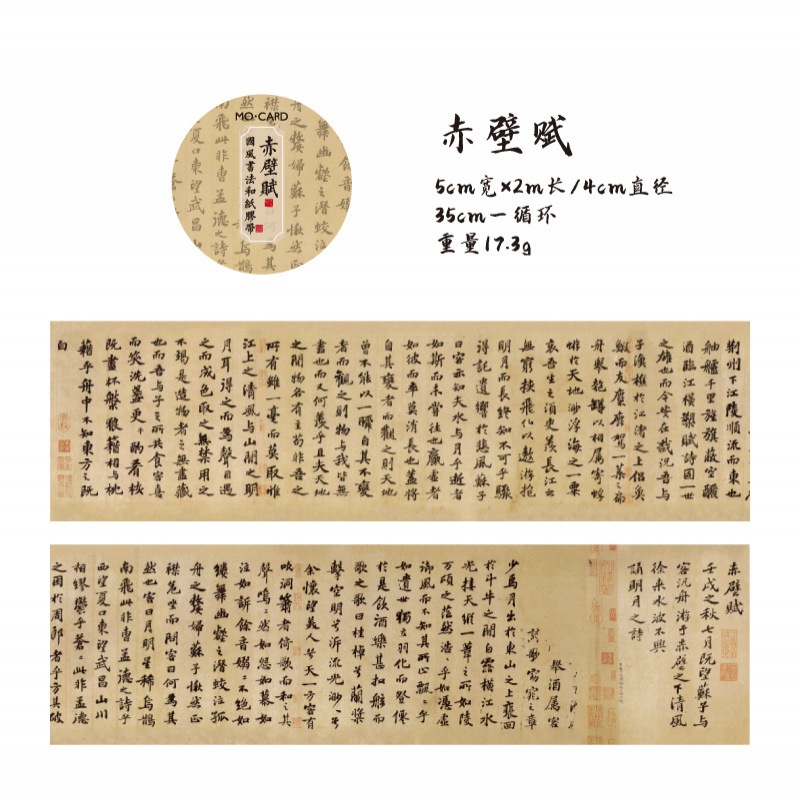 MO·CARD
赤壁賦
國風書法和紙膠帶
餘音嫋
舞幽壑之潜蛟泣
舟之嫠婦蘇子愀然正
南飛此非曹孟德之詩
夏口東望武昌
赤壁赋
5cm宽×2m长/4cm直径
35cm一循环
重量17.3g
荆州下江陵順流而東也
舳艫千里旌旗蔽空釃
酒臨江横槊賦詩固一世
之雄也而今安在哉況吾與
子漁樵於江渚之上侣魚
鰕而友麋鹿駕一葉之扁
舟舉匏罇以相属寄蜉
蝣於天地渺浮海之一粟
哀吾生之須臾羡長江之
無窮挟飛仙以遨游抱
明月而長終知不可乎驟
得託遺響於悲風蘇子
曰客亦知夫水與月乎逝者
如斯而未嘗往也贏虚者
如彼而卒莫消長也蓋將
自其變者而觀之則天地
曾不能以一瞬自其不變
者而觀之則物與我皆無
盡也而又何羨乎且夫天地
之間物各有主苟非吾之
所有雖一毫而莫取惟
江上之清風與山間之明
月耳得之而為聲目遇
之而成色取之無禁用之
不竭是造物者之無盡藏
也而吾與子之所共食客喜
而笑洗盞更酌肴核
既盡杯盤狼藉相與枕
藉乎舟中不知東方之既
白
赤壁賦
壬戌之秋七月既望蘇子與
客汎舟游于赤壁之下清風
徐来水波不興
誦明月之詩
舉酒属客
歌窈窕之章
少焉月出於東山之上裵回
於斗牛之間白露横江水
光接天縱一葦之所如陵
万頃之茫然浩浩乎如憑虚
御風而不知其所止飄飄乎
如遺世獨立羽化而登僊
於是飲酒樂甚扣舷而
歌之歌曰桂棹兮蘭槳
擊空明兮泝流光渺渺兮
余懐望美人兮天一方客有
吹洞簫者倚歌而和之其
聲嗚嗚然如怨如慕如
泣如訴餘音嫋嫋不絶如
縷舞幽壑之潜蛟泣孤
舟之嫠婦蘇子愀然正
襟危坐而問客曰何為其
然也客曰月明星稀烏鵲
南飛此非曹孟德之詩乎
西望夏口東望武昌山川
相繆鬱乎蒼蒼此非孟德
之困於周郎者乎方其破